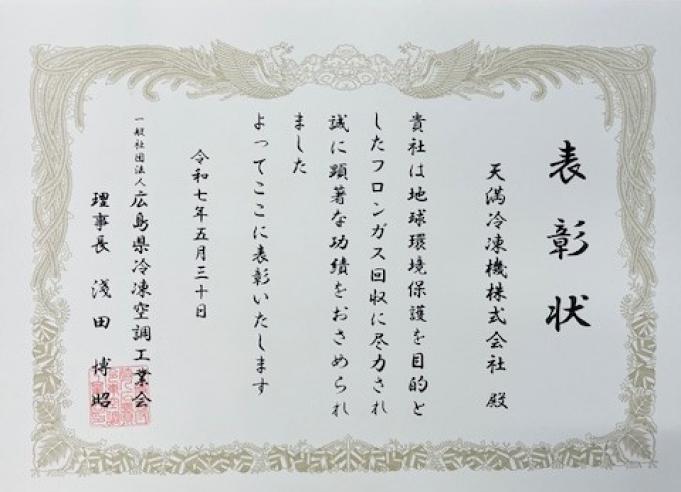 表彰状
天満冷凍機株式会社 殿
貴社は地球環境保護を目的と
したフロンガス回収に尽力され
誠に顕著な功績をおさめられ
ました
よってここに表彰いたします
令和七年五月三十日
一般社団法人 広島県冷凍空調工業会
理事長 淺田 博昭